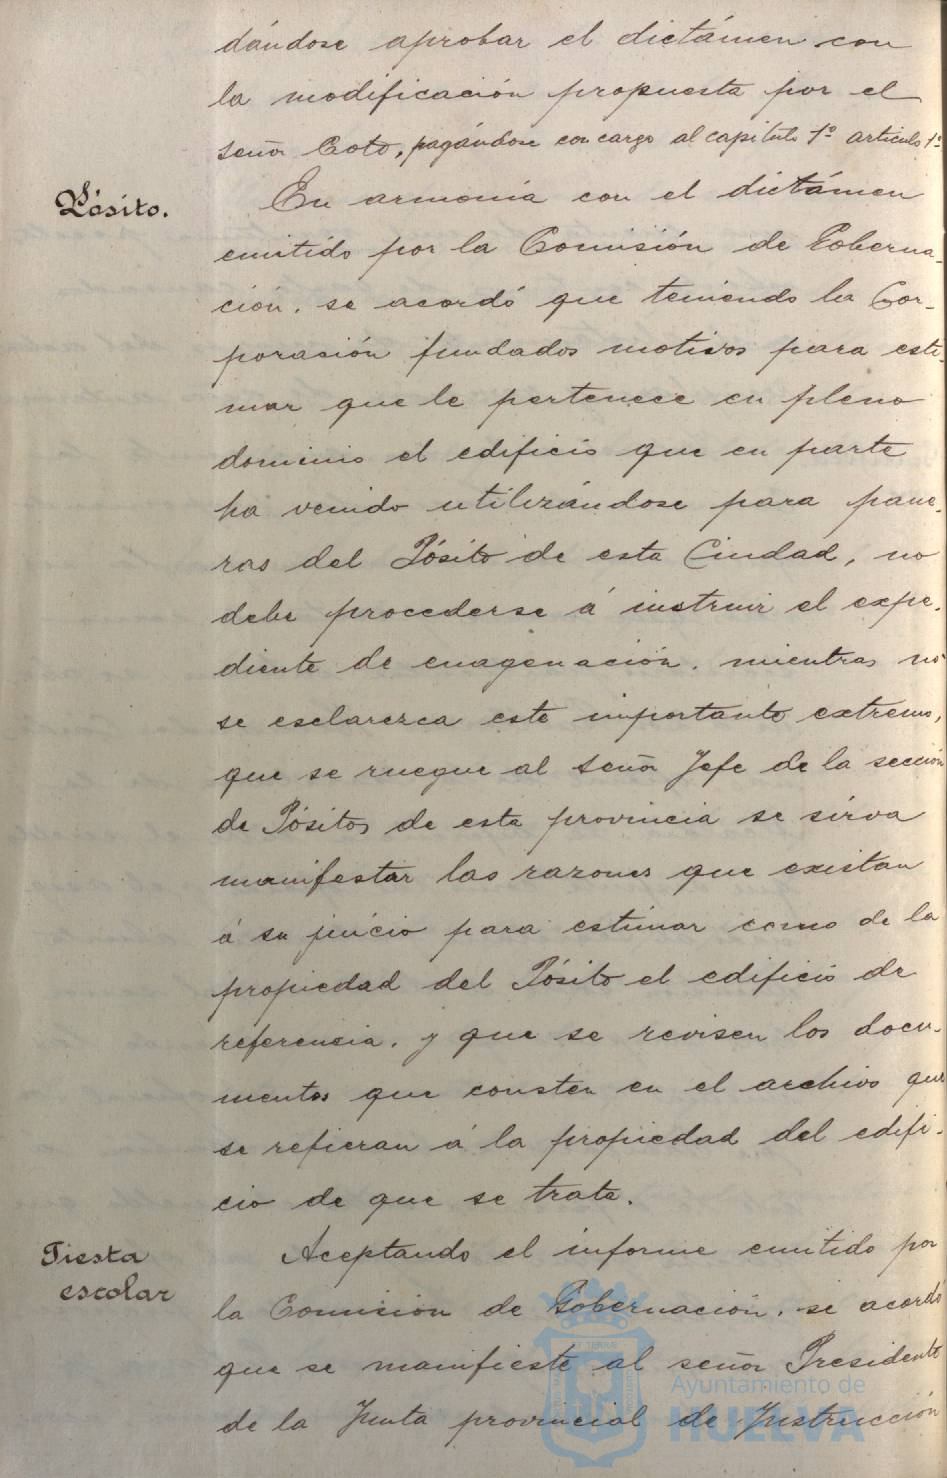 dándose aprobar el dictámen con
la modificación propuesta por el
señor Coto, pagándose con cargo al capítulo 1º artículo 1º
Pósito.
En armonía con el dictámen
emitido por la Comisión de Goberna-
ción, se acordó que teniendo la Cor-
porasión fundados motivos para esti-
mar que le pertenece en pleno
dominio el edificio que en parte
ha venido utilizándose para pane-
ras del Pósito de esta Ciudad, no
debe procederse á instruir el expe-
diente de enagenación, mientras no
se esclarezca este importante extremo,
que se ruegue al señor Jefe de la sección
de Pósitos de esta provincia se sirva
manifestar las razones que existan
á su juicio para estimar como de la
propiedad del Pósito el edificio de
referencia, y que se revisen los docu-
mentos que consten en el archivo que
se refieran á la propiedad del edifi-
cio de que se trata.
Fiesta
escolar
Aceptando el informe emitido por
la Comisión de Gobernación, se acordó
que se manifieste al señor Presidente
de la Junta provincial de Instrucción
Ayuntamiento de
HUELVA